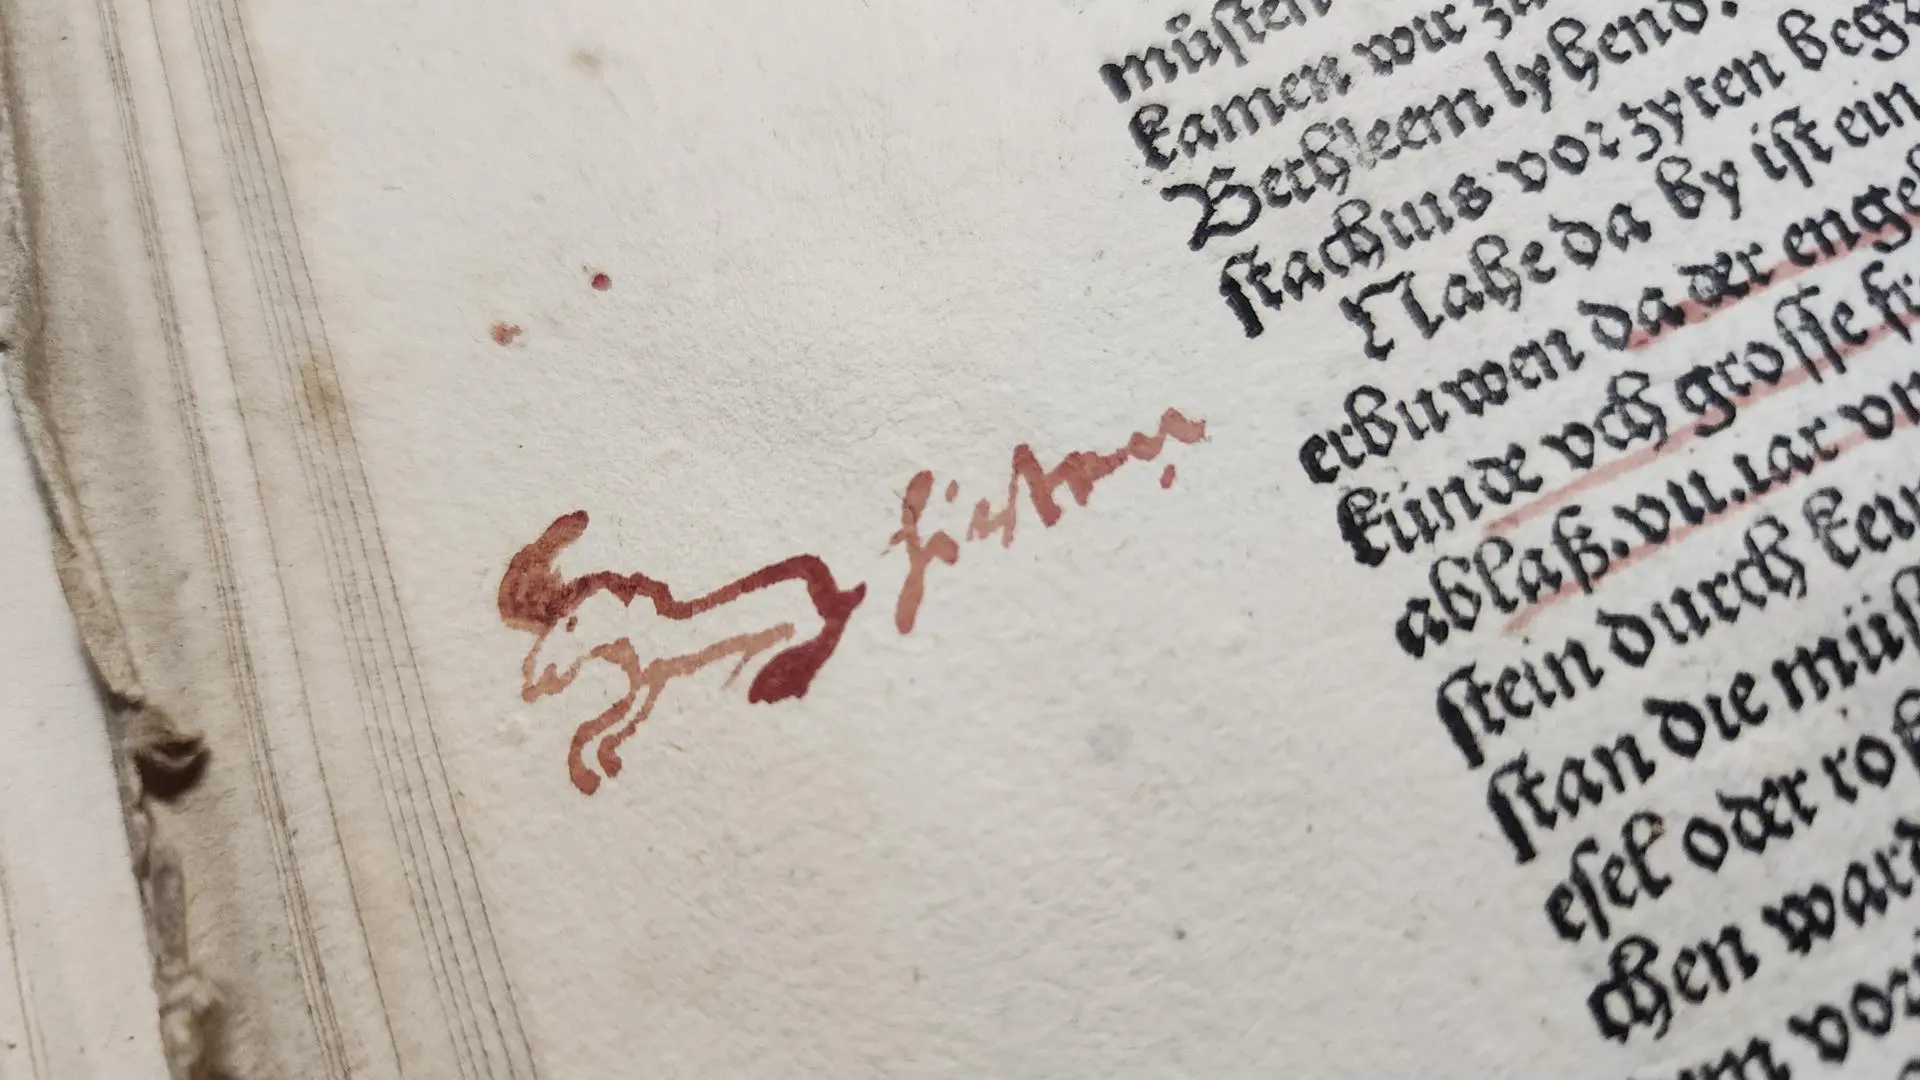 müsten
kamen wir zů
Bethleem lyhend.
stachius vor zyten beg
Nahe da by ist ein
erbuwen da der engel
künde vch grosse fr
ablaß. vii. iar vn
stein durch kein
stan die müß
esel oder roß
chen ward
vor